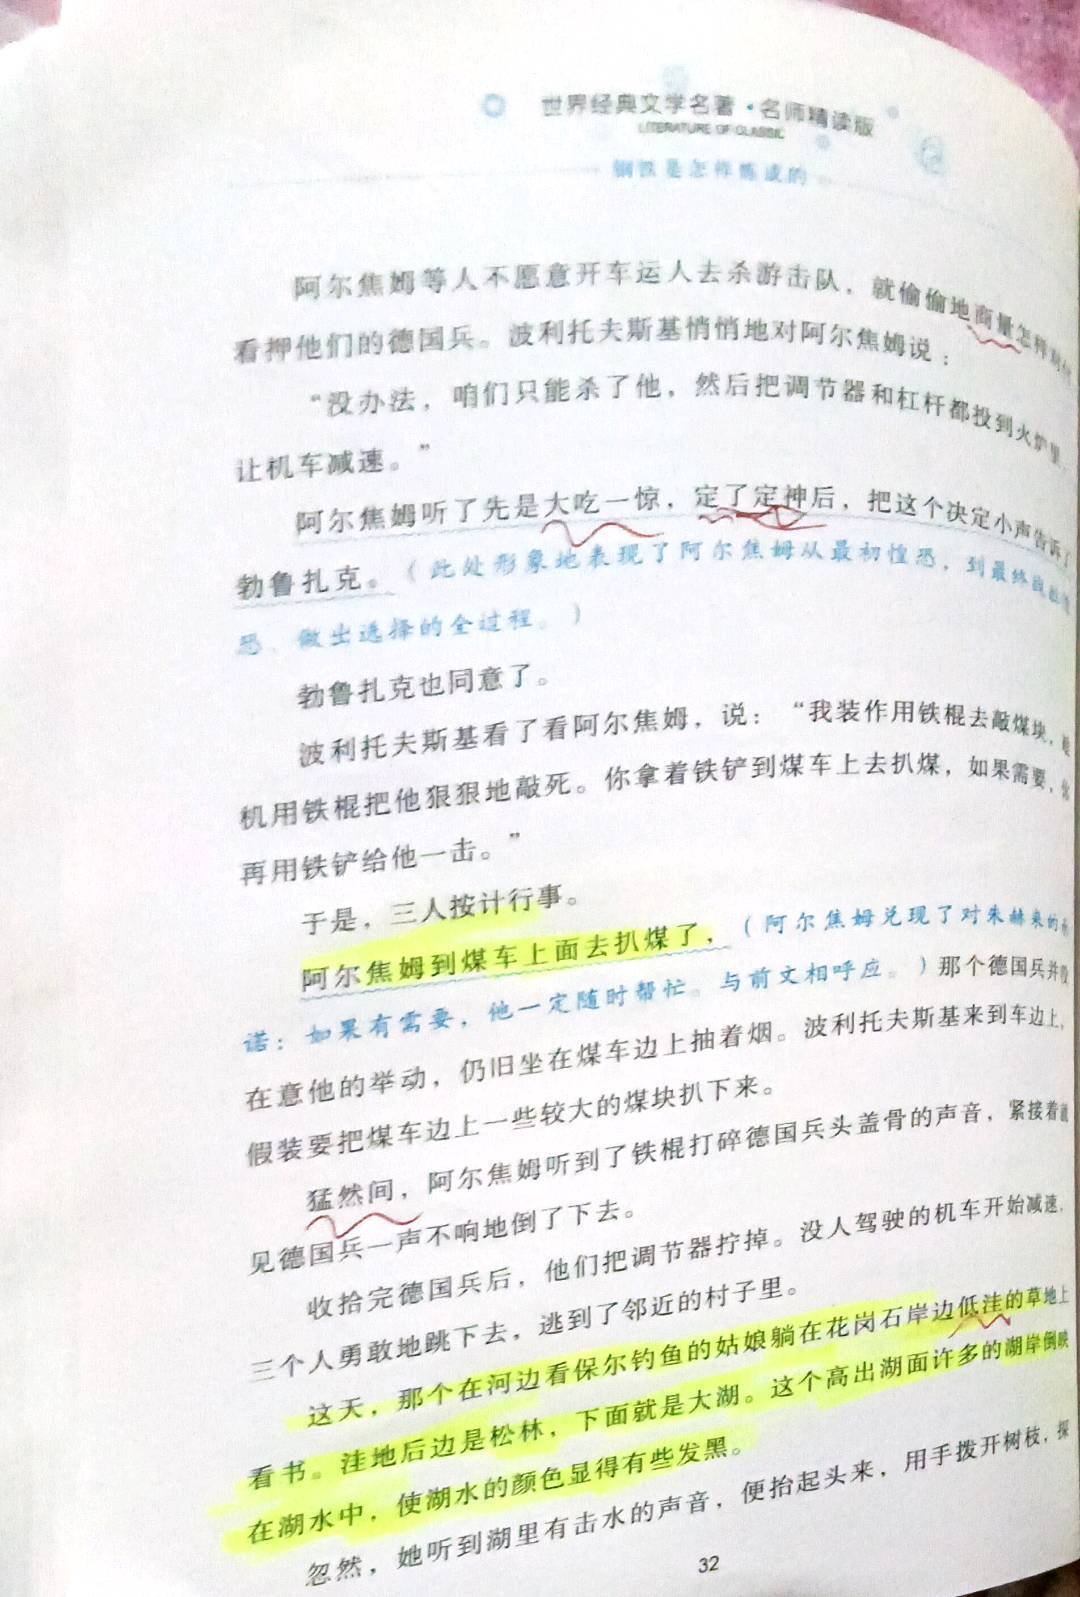 世界经典文学名著·名师精读版
LITERATURE OF CLASSIC
钢铁是怎样炼成的
阿尔焦姆等人不愿意开车运人去杀游击队，就偷偷地商量怎样
看押他们的德国兵。波利托夫斯基悄悄地对阿尔焦姆说：
“没办法，咱们只能杀了他，然后把调节器和杠杆都投到火炉里，
让机车减速。”
阿尔焦姆听了先是大吃一惊，定了定神后，把这个决定小声告诉了
勃鲁扎克。（此处形象地表现了阿尔焦姆从最初惶恐，到最终战胜
恐、做出选择的全过程。）
勃鲁扎克也同意了。
波利托夫斯基看了看阿尔焦姆，说：“我装作用铁棍去敲煤块，
机用铁棍把他狠狠地敲死。你拿着铁铲到煤车上去扒煤，如果需要，你
再用铁铲给他一击。”
于是，三人按计行事。
阿尔焦姆到煤车上面去扒煤了，（阿尔焦姆兑现了对朱赫来的
诺：如果有需要，他一定随时帮忙。与前文相呼应。）那个德国兵并没
在意他的举动，仍旧坐在煤车边上抽着烟。波利托夫斯基来到车边上，
假装要把煤车边上一些较大的煤块扒下来。
猛然间，阿尔焦姆听到了铁棍打碎德国兵头盖骨的声音，紧接着就
见德国兵一声不响地倒了下去。
收拾完德国兵后，他们把调节器拧掉。没人驾驶的机车开始减速，
三个人勇敢地跳下去，逃到了邻近的村子里。
这天，那个在河边看保尔钓鱼的姑娘躺在花岗石岸边低洼的草地上
看书。洼地后边是松林，下面就是大湖。这个高出湖面许多的湖岸倒映
在湖水中，使湖水的颜色显得有些发黑。
忽然，她听到湖里有击水的声音，便抬起头来，用手拨开树枝，探
32